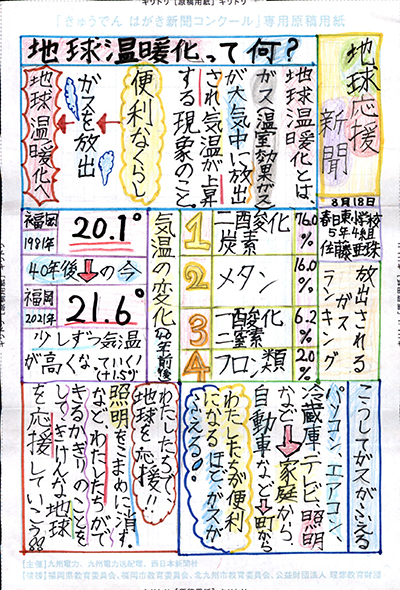 キリトリ【原稿用紙】キリトリ
「きゅうでん はがき新聞コンクール」専用原稿用紙
地球応援
新聞
8月18日
春日東小学校
5年4組
佐藤亜珠
地球温暖化って何?
地球温暖化とは、
ガス温室効果ガス
が大気中に放出
され気温が上昇
する現象のこと。
便利なくらし
ガスを放出
地球温暖化へ
放出される
ガス
ランキング
1 二酸化炭素 76.0%
2 メタン 16.0%
3 一酸化二窒素 6.2%
4 フロン類 2.0%
気温の変化
40年前後
福岡
1981年
20.1°
40年後の今
福岡
2021年
21.6°
少しずつ気温
が高くなっていく!
(+1.5°)
こうしてガスがふえる
パソコン、エアコン、
冷蔵庫、テレビ、照明
など→家庭から、
自動車など→町から
わたしたちが便利
になるほど、ガスが
ふえる。
わたしたちで
地球を応援!!
照明をこまめに消す。
など、わたしたちがで
きるかぎりのことを
して、きけんな地球
を応援していこう
【主催】九州電力、九州電力送配電、西日本新聞社
【後援】福岡県教育委員会、福岡市教育委員会、北九州市教育委員会、公益財団法人 理想教育財団
キリトリ【原稿用紙】キリトリ